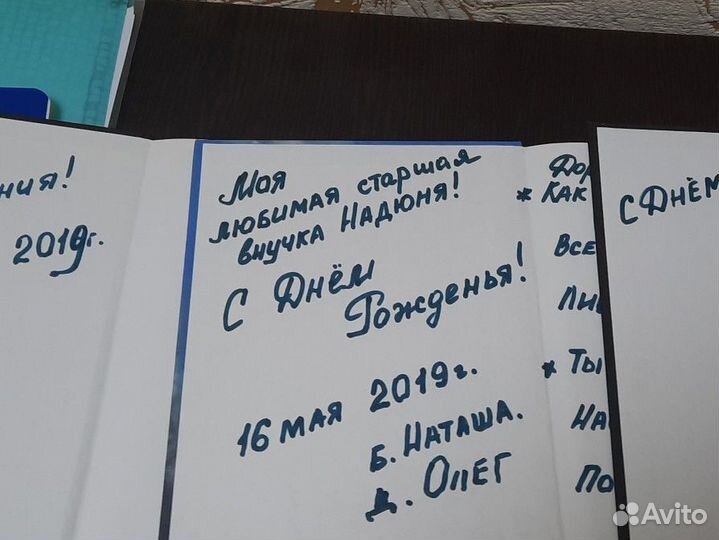 ния!
2019г.
Моя
любимая старшая
внучка Надюня!
С Днём
Рожденья!
16 мая 2019г.
Б. Наташа.
Д. Олег
Дор
* Как
Все
* Ты
На
По
С Днём
Avito